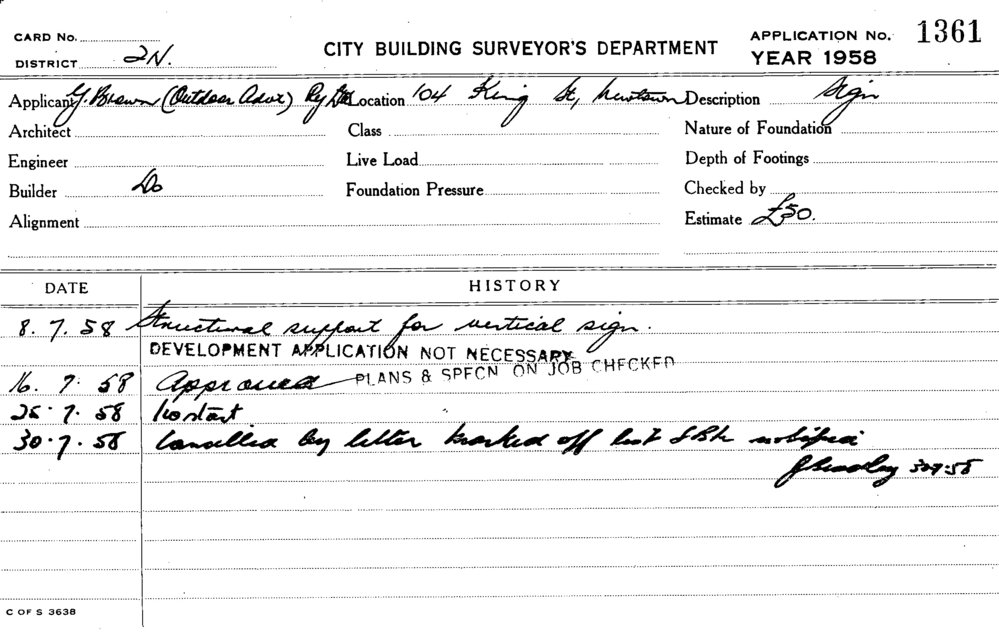 CARD No.
DISTRICT 2N.
CITY BUILDING SURVEYOR'S DEPARTMENT
APPLICATION No. 1361
YEAR 1958
Applicant Y. Brown (Outdoor Advt) Pty Ltd Location 104 King St, Newtown Description Sign
Architect Class Nature of Foundation
Engineer Live Load Depth of Footings
Builder Do Foundation Pressure Checked by
Alignment Estimate £50.
DATE HISTORY
8.7.58 Structural support for vertical sign.
DEVELOPMENT APPLICATION NOT NECESSARY
16.7.58 Approved PLANS & SPECN ON JOB CHECKED
25.7.58 No start
30.7.58 Cancelled by letter marked off list notified
30.7.58
C OF S 3638